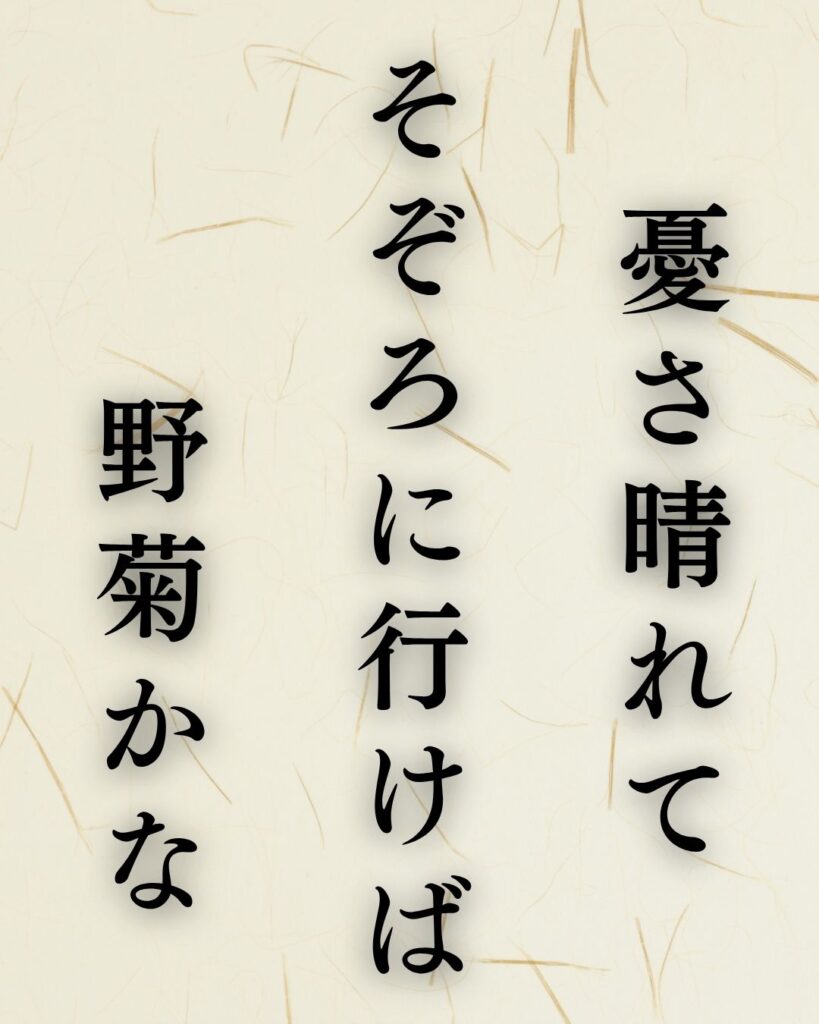 憂さ晴れて
そぞろに行けば
野菊かな